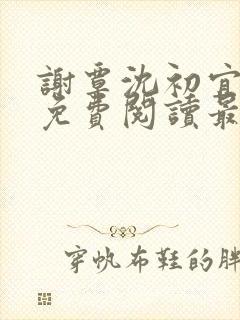 謝覃沈初宜
免費閱讀最
穿帆布鞋的胖